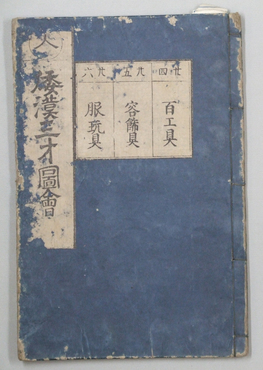 倭漢三才圖會
廿四
百工具
廿五
容飾具
廿六
服玩具